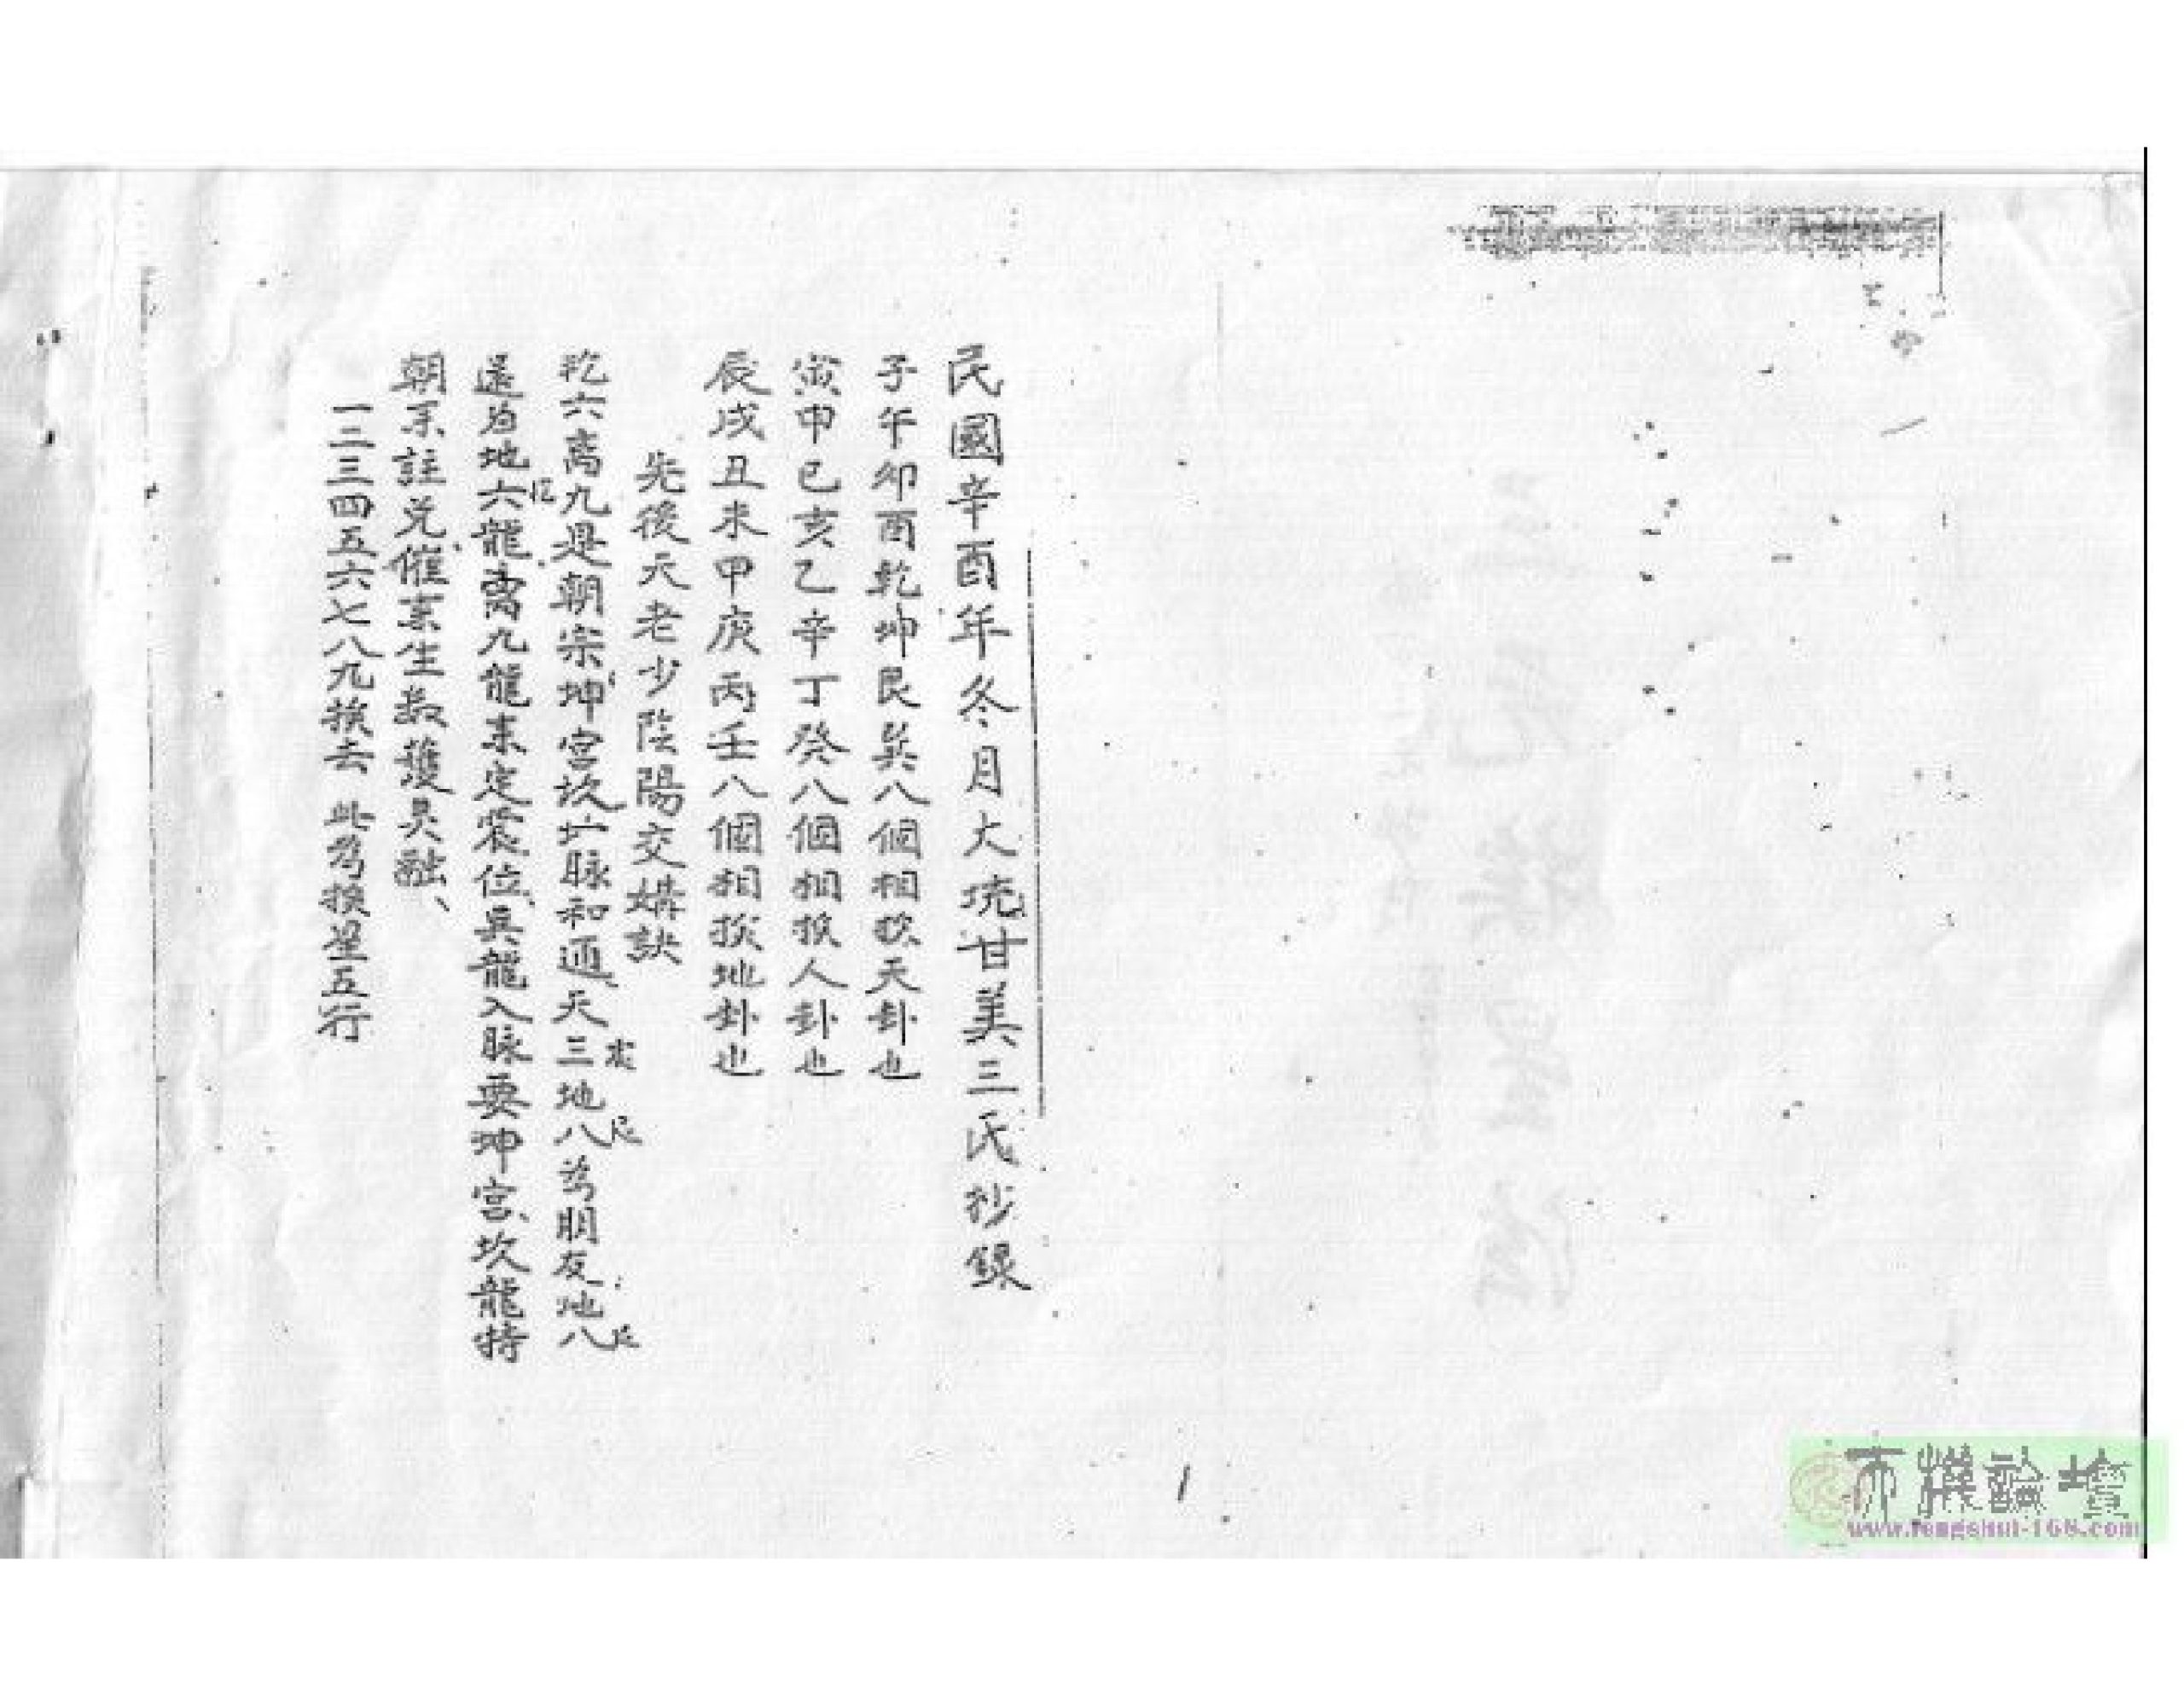 民國辛酉年冬月大坑甘美三氏抄錄
子午卯酉乾坤艮巽八個相換天卦也
寅申巳亥乙辛丁癸八個相換人卦也
辰戌丑未甲庚丙壬八個相換地卦也
先後天老少陰陽交媾訣
乾六离九是朝宗坤宮坎 脉和通天三地八為朋友地八
還為地六龍離九龍來定震位巽龍入脉要坤宮坎龍持
朝 註兌催 生 護 融
一二三四五六七八九換去 此為換 五行
1
天機論壇
www.fengshui-168.com